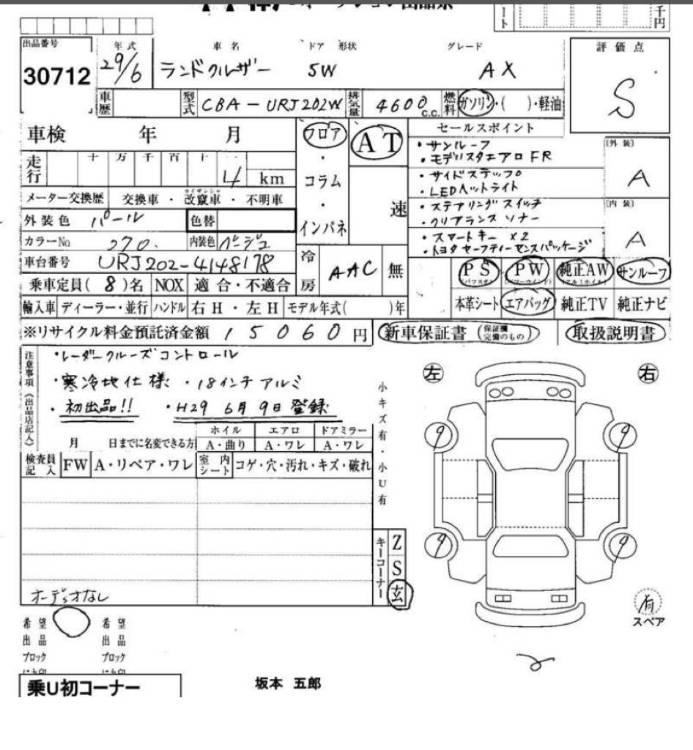 出品番号 年式 車名 ドア 形状 グレード 評価点
30712 29/6 ランドクルザー 5W AX S
車歴 型式 CBA-URJ202W 排気量 4600 c.c. 燃料 ガソリン・( )・軽油
車検 年 月 フロア AT セールスポイント
・サンルーフ
・モデリスタエアロ FR
[外装] A
走行 十 万 千 百 十 一
4 km
・コラム・
・サイドステップ
・LEDヘットライト
メーター交換歴 交換車・改竄車・不明車
・ステアリングスイッチ
・クリアランスソナー
[内装] A
外装色 パール 色替 インパネ 速
カラーNo 070 内装色 ベージュ
・スマートキー×2
・トヨタセーフティーセンスパッケージ
車台番号 URJ202-4148178 冷房 AAC 無
PS PW 純正AW サンルーフ
乗車定員(8)名 NOX 適合・不適合
本革シート エアバッグ 純正TV 純正ナビ
輸入車 ディーラー・並行 ハンドル 右H・左H モデル年式( )年
※リサイクル料金預託済金額 15060円 新車保証書(保証欄完備のもの) 取扱説明書
注意事項《出品店記入》
・レーダークルーズコントロール
・寒冷地仕様 ・18インチアルミ
・初出品!! ・H29 6月9日登録
左 右
小キズ有・小U有
月 日までに名変できる方
ホイル エアロ ドアミラー
A・曲り A・ワレ A・ワレ
検査員記入 FW A・リペア・ワレ 室内シート コゲ・穴・汚れ・キズ・破れ
9 9
9 9
キーコーナー Z S 玄
オーディオなし
有
スペア
希望出品ブロック
希望出品ブロック
乗U初コーナー
坂本 五郎